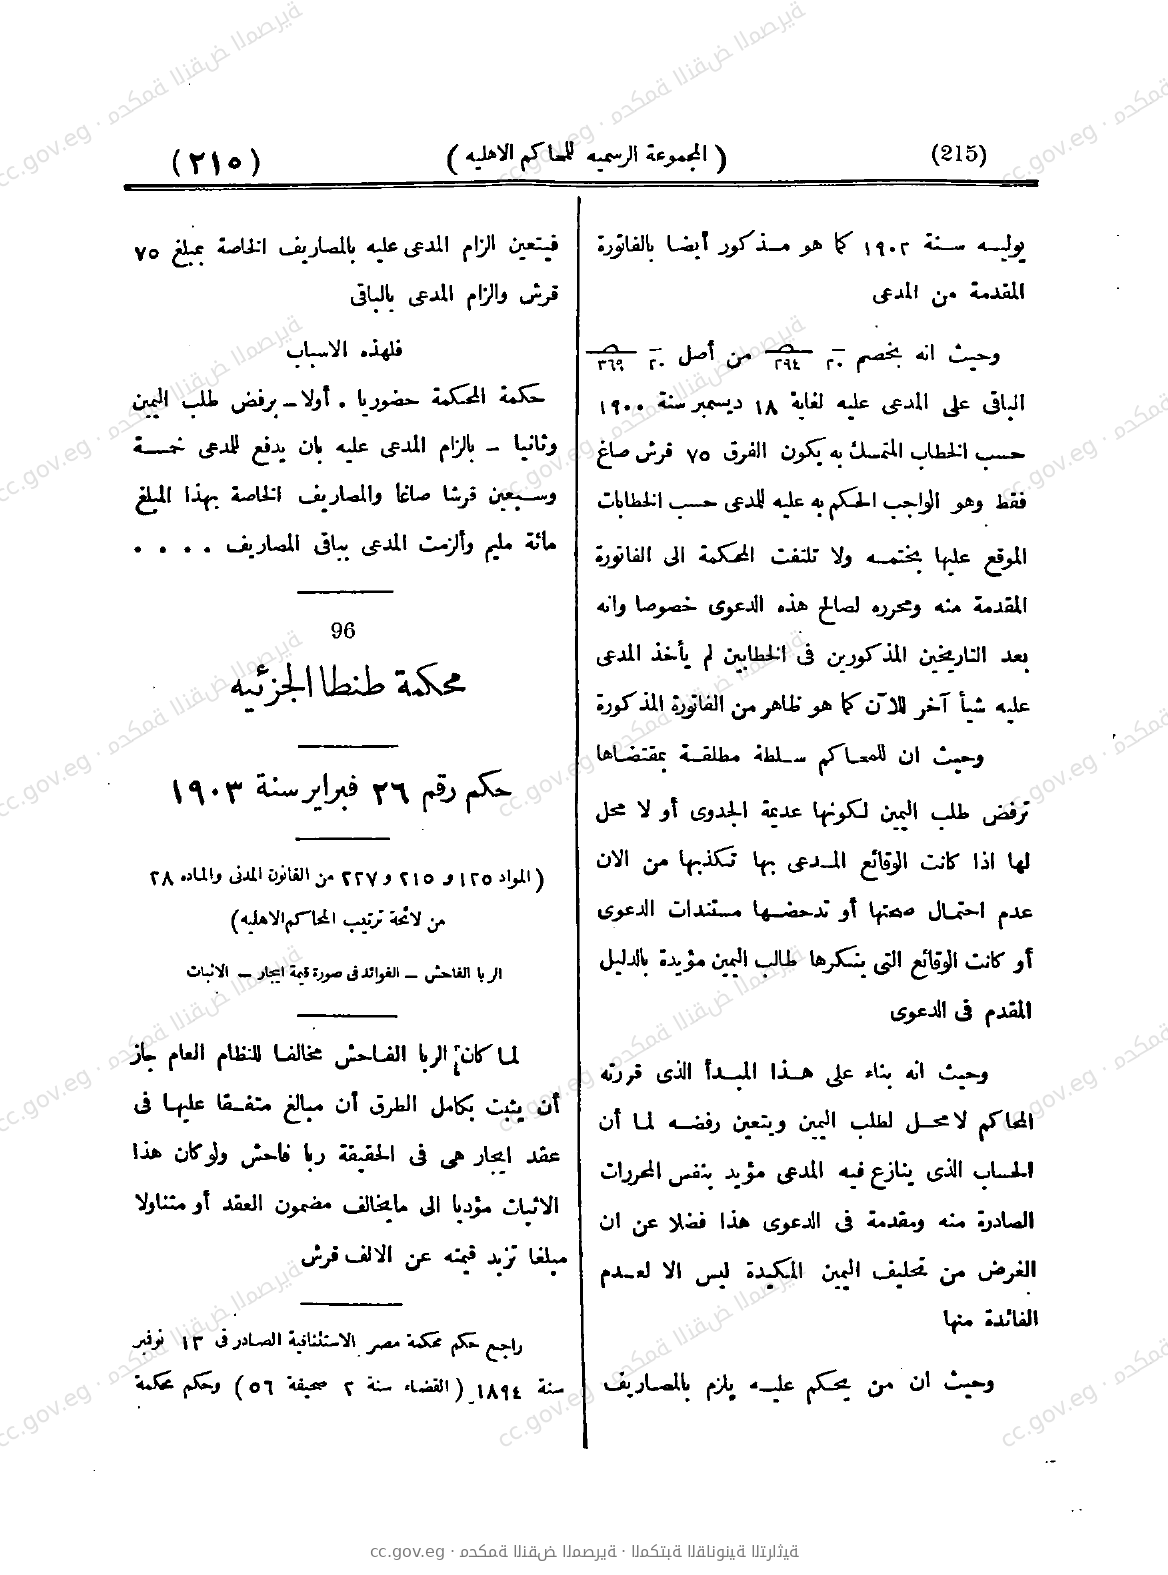 (215)
( المجموعة الرسميه للمحاكم الاهليه )
(٢١٥)
يوليـه سـنة ١٩٠٢ كما هو مـذكور أيضا بالفاتورة
المقدمة من المدعى
وحيث انه بخصم ٢٠ ٢٩٤ من أصل ٢٠ ٣٦٩
الباقى على المدعى عليه لغاية ١٨ ديسمبر سنة ١٩٠٠
حسب الخطاب المتمسك به يكون الفرق ٧٥ قرش صاغ
فقط وهو الواجب الحكم به عليه للمدعى حسب الخطابات
الموقع عليها بختمـه ولا تلتفت المحكمة الى الفاتورة
المقدمة منه ومحرره لصالح هذه الدعوى خصوصا وانه
بعد التاريخين المذكورين فى الخطابين لم يأخذ المدعى
عليه شيأ آخر للآن كما هو ظاهر من الفاتورة المذكورة
وحيث ان للمحاكم سـلطة مطلقـة بمقتضـاها
ترفض طلب اليمين لـكونها عديمة الجدوى أو لا محل
لها اذا كانت الوقائع المـدعى بها تـكذبها من الان
عدم احتمـال صحتها أو تدحضـها مستندات الدعوى
أو كانت الوقائع التى ينـكرها طالب اليمين مؤيدة بالدليل
المقدم فى الدعوى
وحيث انه بناء على هـذا المبـدأ الذى قررته
المحاكم لا محـل لطلب اليمين ويتعين رفضـه لمـا أن
الحساب الذى ينازع فيه المدعى مؤيد بنفس المحررات
الصادرة منه ومقدمة فى الدعوى هذا فضلا عن ان
الغرض من تحليف اليمين المكيدة ليس الا لعـدم
الفائدة منها
وحيث ان من يحكم عليـه يلزم بالمصـاريف
فيتعين الزام المدعى عليه بالمصاريف الخاصة بمبلغ ٧٥
قرش والزام المدعى بالباقى
فلهذه الاسباب
حكمة المحكمة حضوريا . أولا ــ برفض طلب اليمين
وثانيا ــ بالزام المدعى عليه بان يدفع للمدعى خمـسة
وسـبعين قرشا صاغا والمصاريف الخاصة بهذا المبلغ
مائة مليم وألزمت المدعى بباقى المصاريف . . . .
96
محكمة طنطا الجزئيه
حكم رقم ٢٦ فبراير سنة ١٩٠٣
( المواد ١٢٥ و ٢١٥ و ٢٢٧ من القانون المدنى والماده ٢٨
من لائحة ترتيب المحاكم الاهليه)
الربا الفاحش ــ الفوائد فى صورة قيمة ايجار ــ الاثبات
لما كان الربا الفـاحش مخالفـا للنظام العام جاز
أن يثبت بكامل الطرق أن مبالغ متفـقا عليهـا فى
عقد ايجار هى فى الحقيقة ربا فاحش ولو كان هذا
الاثبات مؤديا الى مايخالف مضمون العقد أو متناولا
مبلغا تزيد قيمته عن الالف قرش
راجع حكم محكمة مصر الاستئنافية الصادر فى ١٣ نوفمبر
سنة ١٨٩٤ ( القضاء سنة ٢ صحيفة ٥٦ ) وحكم محكمة
cc.gov.eg · محكمة النقض المصرية · المكتبة القانونية التراثية